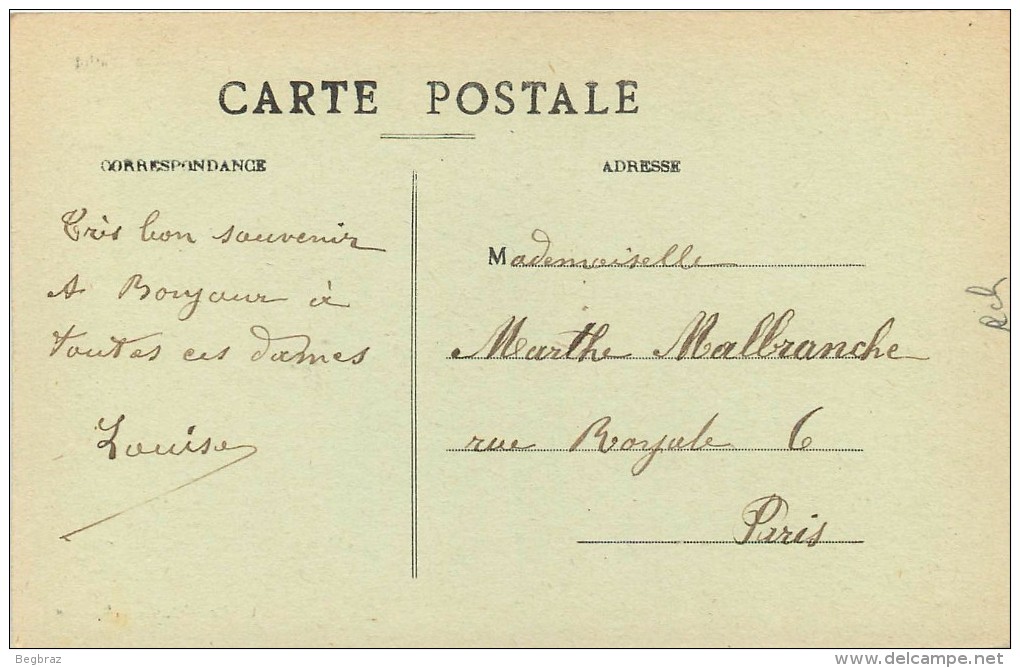 CARTE POSTALE
CORRESPONDANCE
ADRESSE
Très bon souvenir
A Bonjour à
toutes ces dames
Louise
Mademoiselle
Marthe Malbranche
rue Royale 6
Paris
Begbraz
delcampe.net